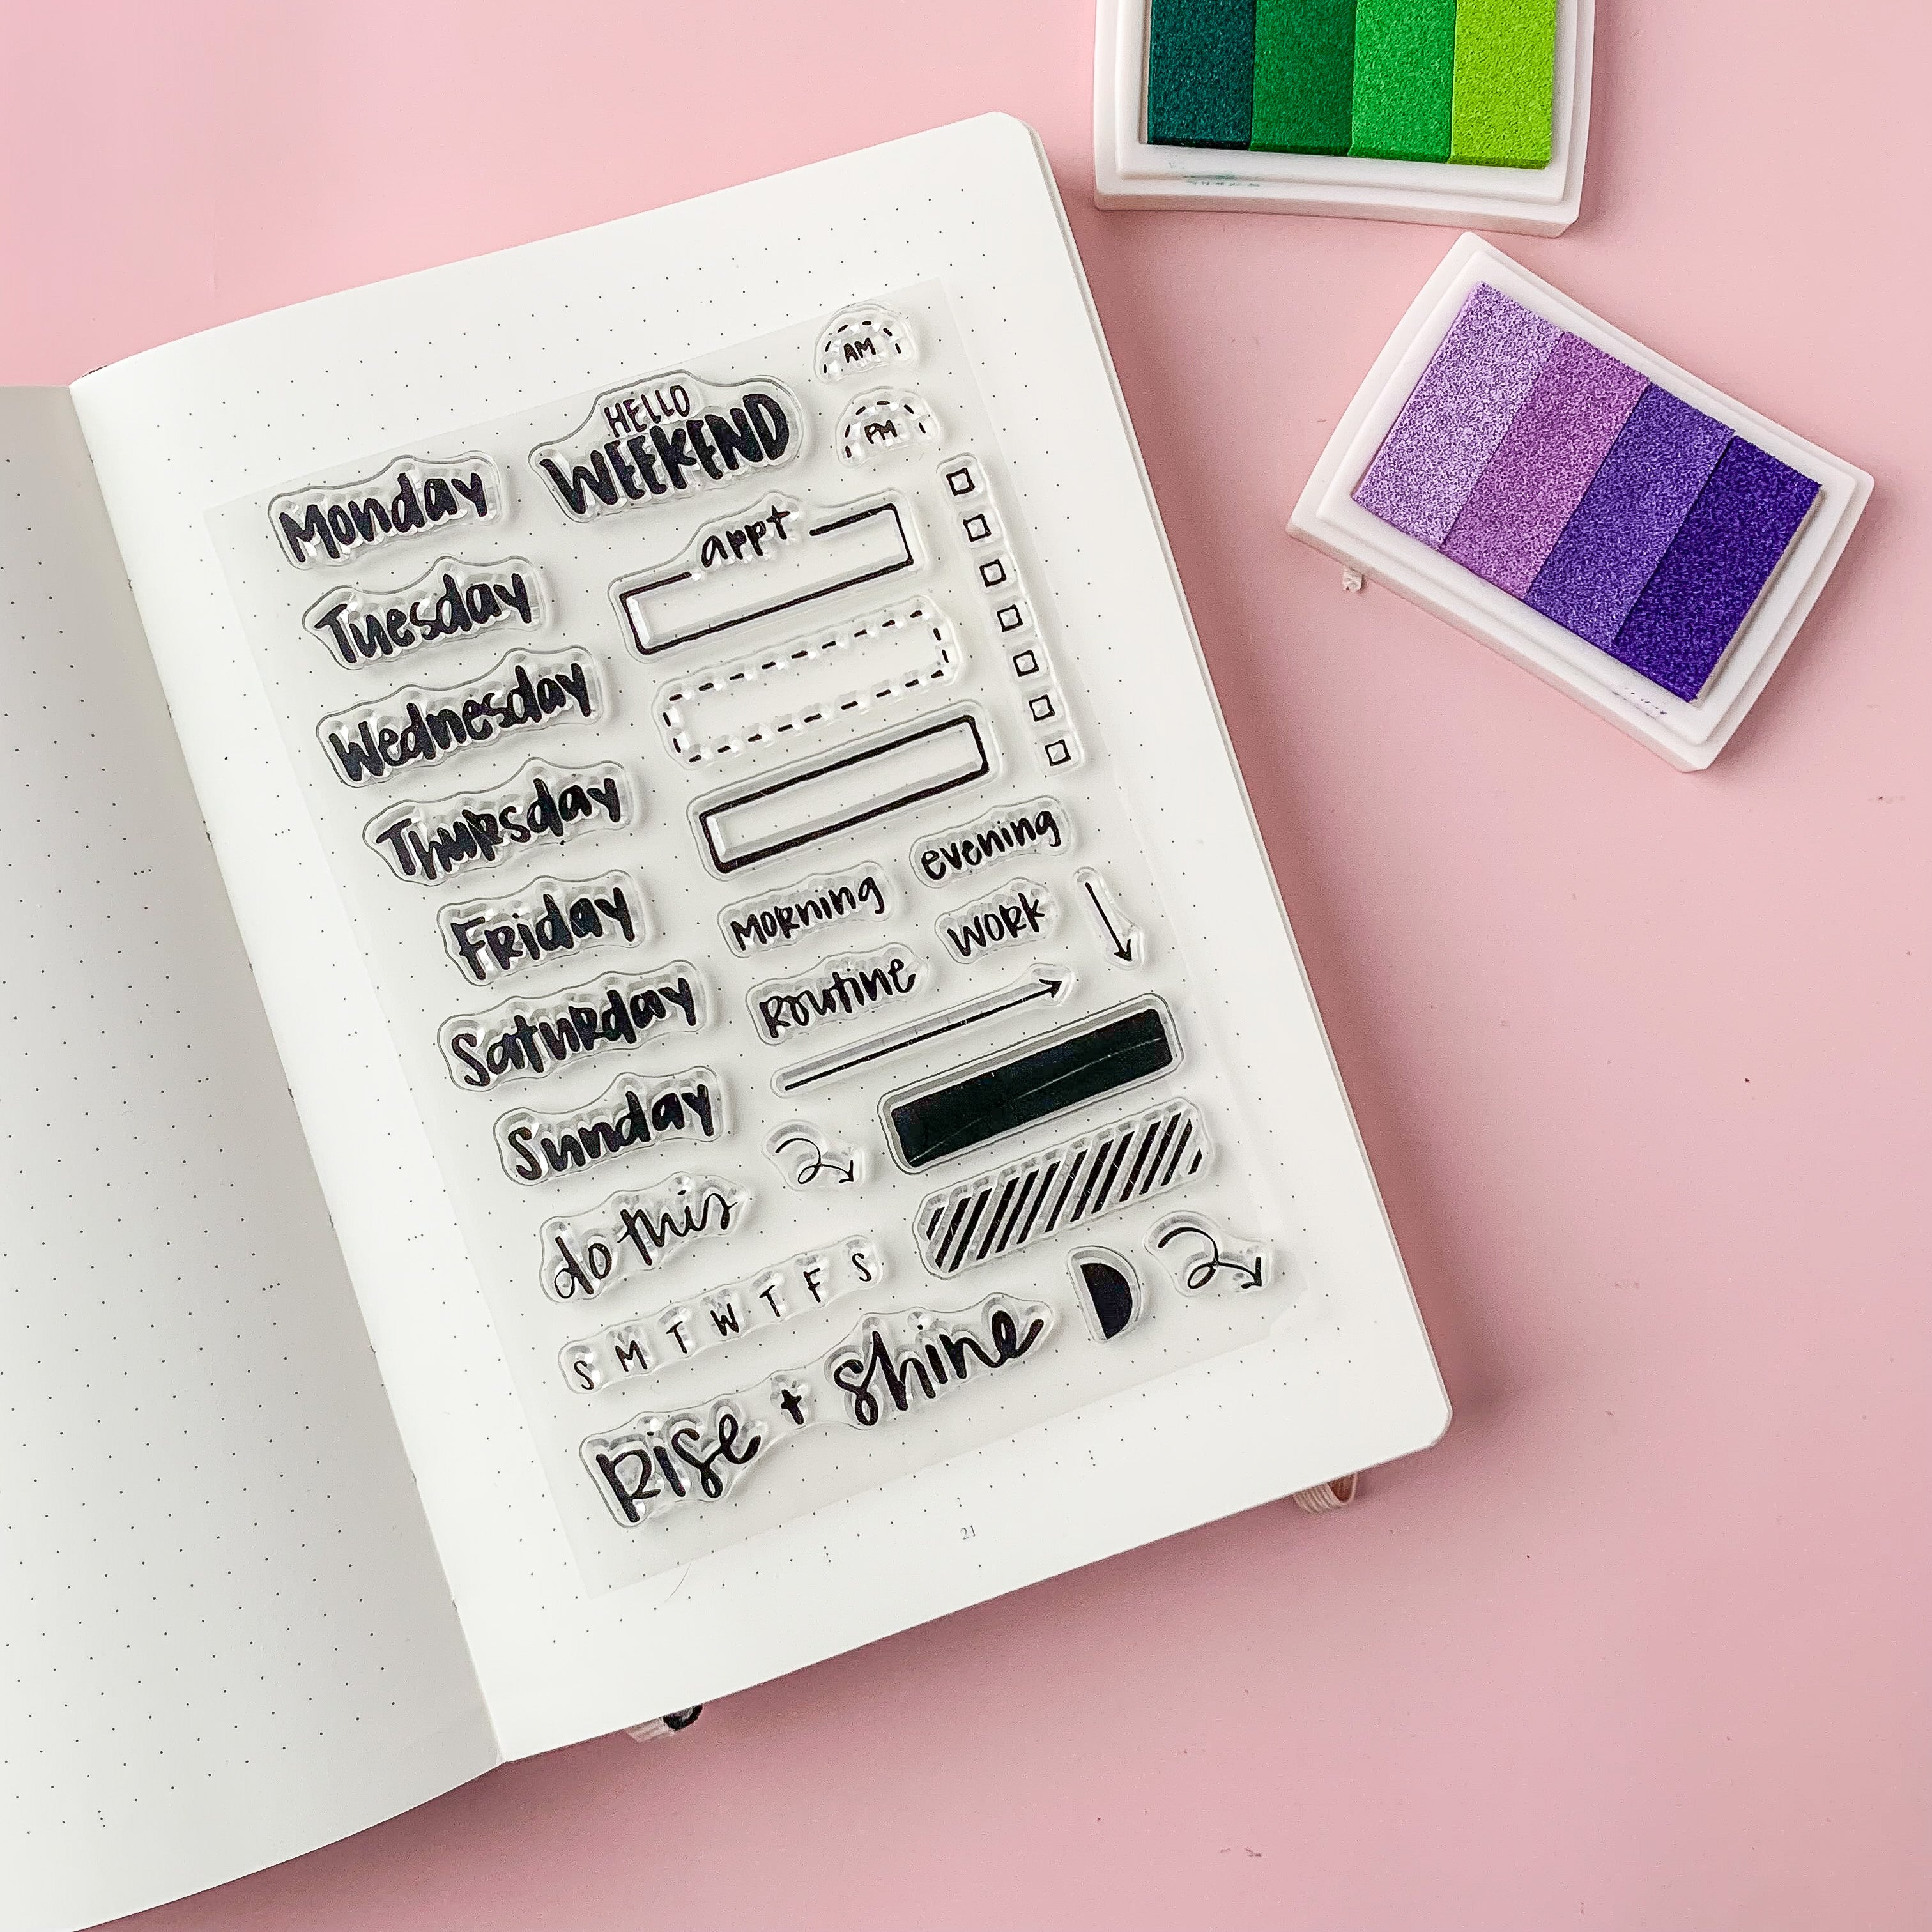 AM
HELLO
WEEKEND
PM
Monday
appt
Tuesday
Wednesday
Thursday
evening
Friday
Morning
WORK
Routine
Saturday
Sunday
do this
S M T W T F S
Rise + shine
21